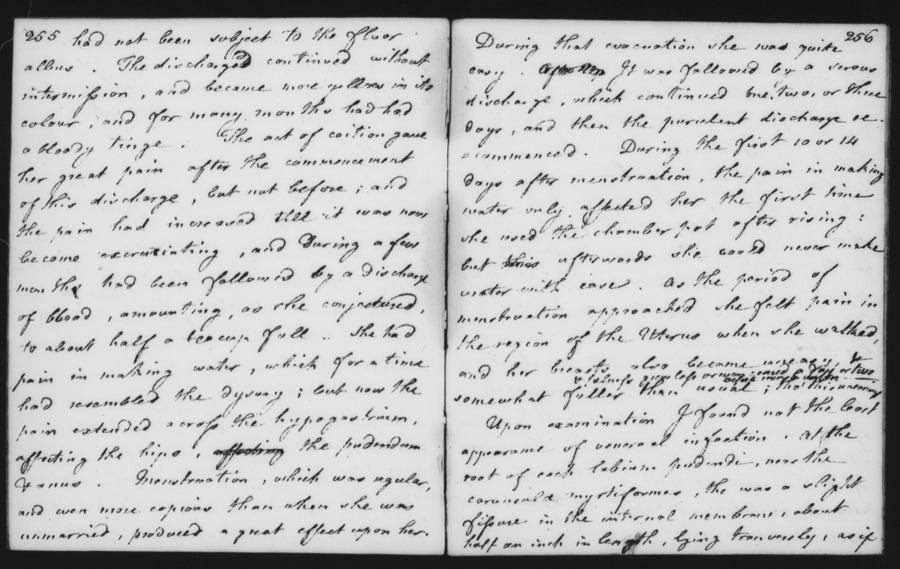 255 had not been subject to the fluor
albus. The discharge continued without
intermission, and became more yellow in its
colour; and for many months had had
a bloody tinge. The act of coition gave
her great pain after the commencement
of this discharge, but not before; and
the pain had increased till it was now
become excruciating, and During a few
months had been followed by a discharge
of blood, amounting, as she conjectured,
to about half a teacup full. She had
pain in making water, which for a time
had resembled the dysury; but now the
pain extended across the hypogastrium,
affecting the hips, affecting the pudendum
& anus. Menstruation, which was regular,
and even more copious than when she was
unmarried, produced a great effect upon her.
256
During that evacuation she was quite
easy. It was followed by a serous
discharge, which continued one, two, or three
days, and then the purulent discharge re-
=commenced. During the first 10 or 14
days after menstruation, the pain in making
water only affected her the first time
she used the chamber pot after rising:
but this afterwards she could never make
water with ease. As the period of
menstruation approached she felt pain in
the region of the Uterus when she walked,
and her breasts also became uneasy, &
somewhat fuller than usual;
Upon examination I found not the least
appearance of venereal infection. At the
root of each labium pudendi, near the
carunculæ myrtiformes, the was a slight
fissure in the internal membrane, about
half an inch in length, lying transversly, as if